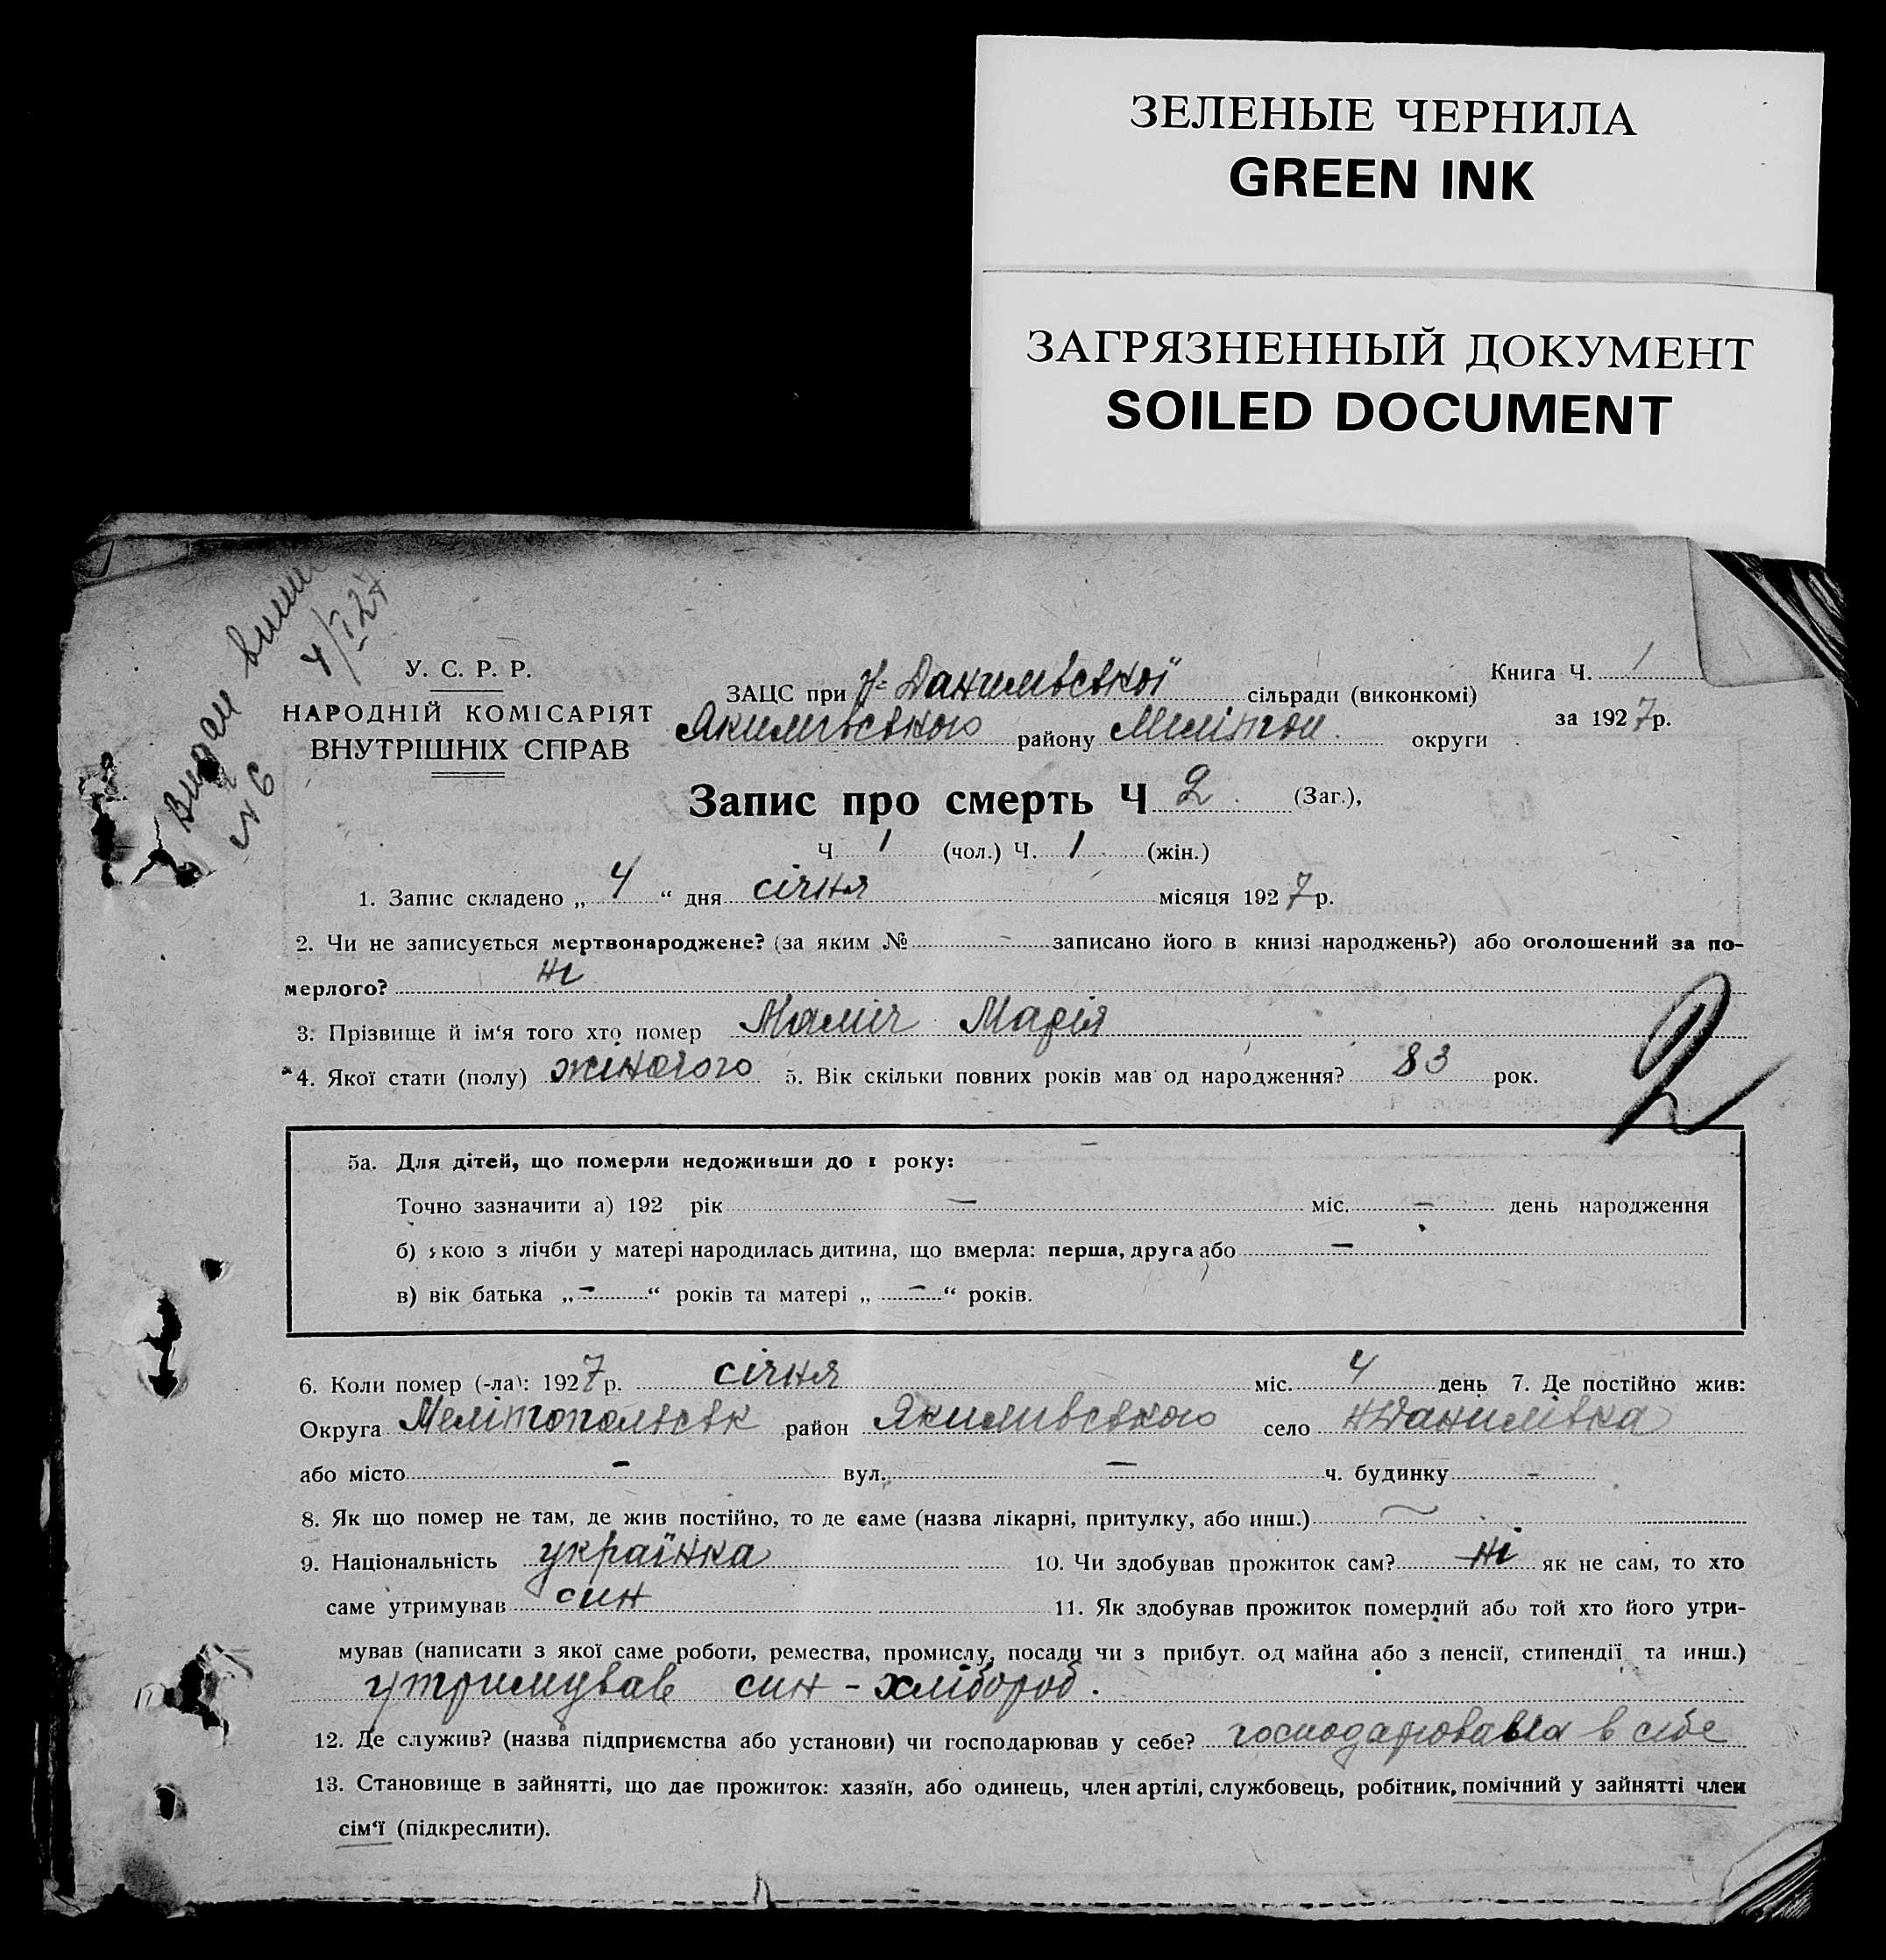 ЗЕЛЕНЫЕ ЧЕРНИЛА
GREEN INK
ЗАГРЯЗНЕННЫЙ ДОКУМЕНТ
SOILED DOCUMENT
Видан
4/I 27
№ 6
У. С. Р. Р.
НАРОДНІЙ КОМІСАРІЯТ
ВНУТРІШНІХ СПРАВ
ЗАЦС при Н-Данилівської сільради (виконкомі)
Якимівського району Меліточ. округи
Книга Ч. 1
за 1927 р.
Запис про смерть Ч 2. (Заг.),
Ч 1 (чол.) Ч. 1 (жін.)
1. Запис складено „ 4 “ дня січня місяця 1927 р.
2. Чи не записується мертвонароджене? (за яким № - записано його в книзі народжень?) або оголошений за по-
мерлого? ні
3. Прізвище й ім‘я того хто помер Марія
4. Якої стати (полу) жіночого 5. Вік скільки повних років мав од народження? 83 рок.
2
5а. Для дітей, що померли недоживши до 1 року: -
Точно зазначити а) 192 рік — міс. — день народження
б) якою з лічби у матері народилась дитина, що вмерла: перша, друга або —
в) вік батька „ - “ років та матері „ - “ років.
6. Коли помер (-ла): 1927 р. січня міс. 4 день 7. Де постійно жив:
Округа Мелітопольськ район Якимівського село Н Данилівка
або місто - вул. — ч. будинку -
8. Як що помер не там, де жив постійно, то де саме (назва лікарні, притулку, або инш.) ~
9. Національність українка 10. Чи здобував прожиток сам? ні як не сам, то хто
саме утримував син 11. Як здобував прожиток померлий або той хто його утри-
мував (написати з якої саме роботи, ремества, промислу, посади чи з прибут. од майна або з пенсії, стипендії та инш.)
утримував син - хлібороб.
12. Де служив? (назва підприємства або установи) чи господарював у себе? господарювала в себе
13. Становище в зайнятті, що дає прожиток: хазяїн, або одинець, член артілі, службовець, робітник, помічний у зайнятті член
сім‘ї (підкреслити).